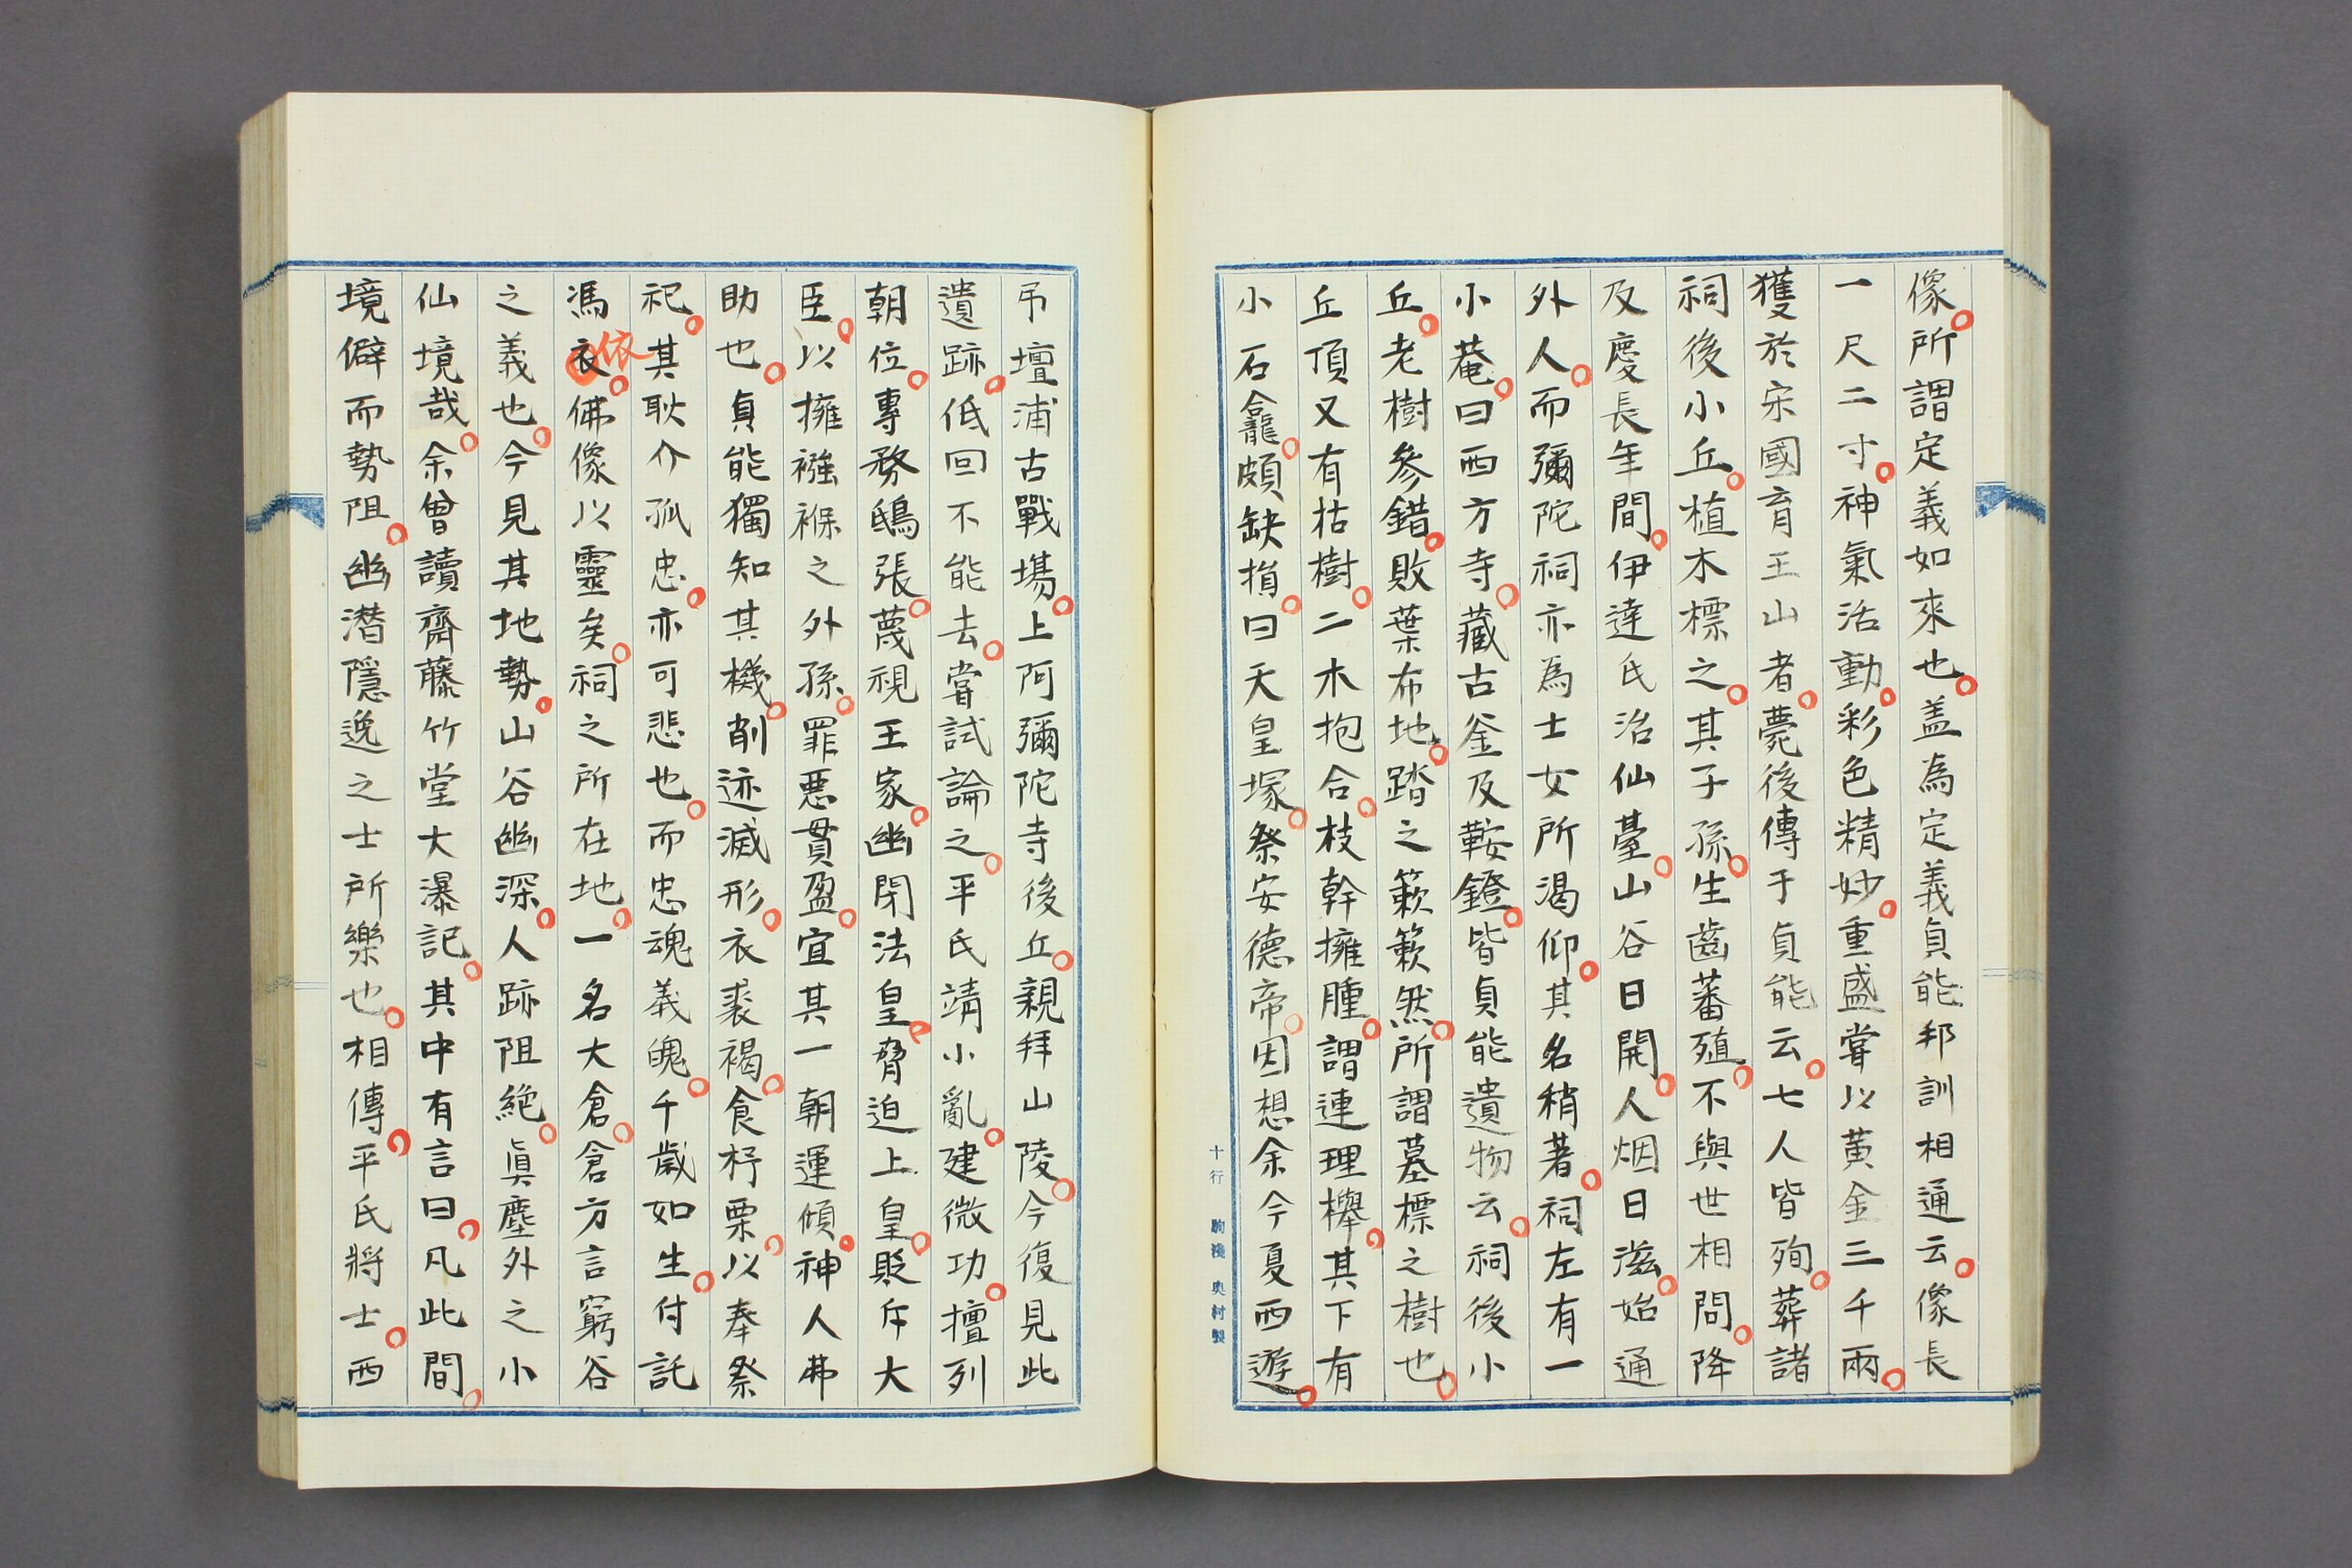 像。所謂定義如來也。盖為定義貞能邦訓相通云。像長
一尺二寸。神氣活動。彩色精妙。重盛甞以黄金三千兩。
獲於宋國育王山者。薨後傳于貞能云。七人皆殉。葬諸
祠後小丘。植木標之。其子孫。生齒蕃殖。不與世相問。降
及慶長年間。伊達氏治仙臺。山谷日開。人烟日滋。始通
外人。而彌陀祠亦為士女所渴仰。其名稍著。祠左有一
小菴。曰西方寺。藏古釜及鞍鐙。皆貞能遺物云。祠後小
丘。老樹參錯。敗葉布地。踏之簌簌然。所謂墓標之樹也。
丘頂又有枯樹。二木抱合。枝幹擁腫。謂連理欅。其下有
小石龕。頗缺損。曰天皇塚。祭安德帝。因想余今夏西遊。
十行 駒後 奥村製
弔壇浦古戰塲。上阿彌陀寺後丘。親拜山陵。今復見此
遺跡。低回不能去。甞試論之。平氏靖小亂。建微功。擅列
朝位。專務鴟張。蔑視王家。幽閉法皇。脅迫上皇。貶斥大
臣。以擁襁褓之外孫。罪惡貫盈。宜其一朝運傾。神人弗
助也。貞能獨知其機。削迹滅形。衣裘褐。食杼栗。以奉祭
祀。其耿介孤忠。亦可悲也。而忠魂義魄。千歲如生。付託
馮衣。佛像以靈矣。祠之所在地。一名大倉。倉方言窮谷
依
之義也。今見其地勢。山谷幽深。人跡阻絶。眞塵外之小
仙境哉。余曾讀齋藤竹堂大瀑記。其中有言曰。凡此間。
境僻而勢阻。幽潛隱逸之士所樂也。相傳。平氏將士。西